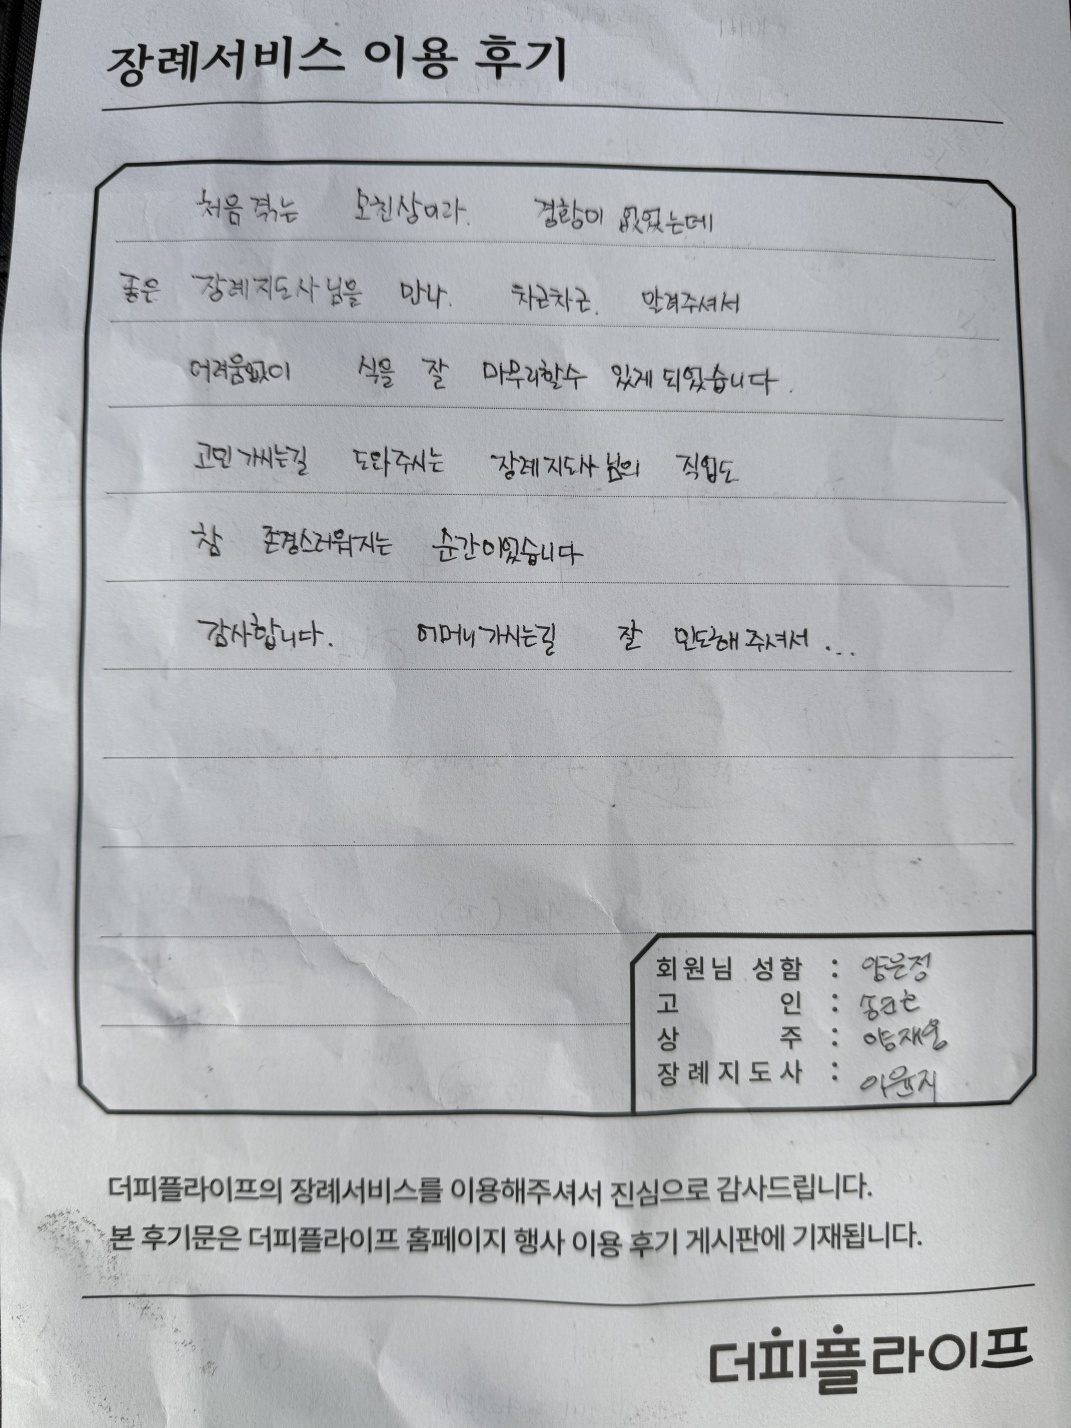 장례서비스 이용 후기
처음 겪는 모친상이라. 경황이 없었는데
좋은 장례지도사님을 만나. 차근차근. 알려주셔서
어려움없이 식을 잘 마무리할수 있게 되었습니다.
고인 가시는길 도와주시는 장례지도사님의 직업도
참 존경스러워지는 순간이었습니다
감사합니다. 어머니가시는길 잘 인도해주셔서...
회원님 성함 : 양은정
고 인 :
상 주 : 양재웅
장례지도사 : 이윤지
더피플라이프의 장례서비스를 이용해주셔서 진심으로 감사드립니다.
본 후기문은 더피플라이프 홈페이지 행사 이용 후기 게시판에 기재됩니다.
더피플라이프